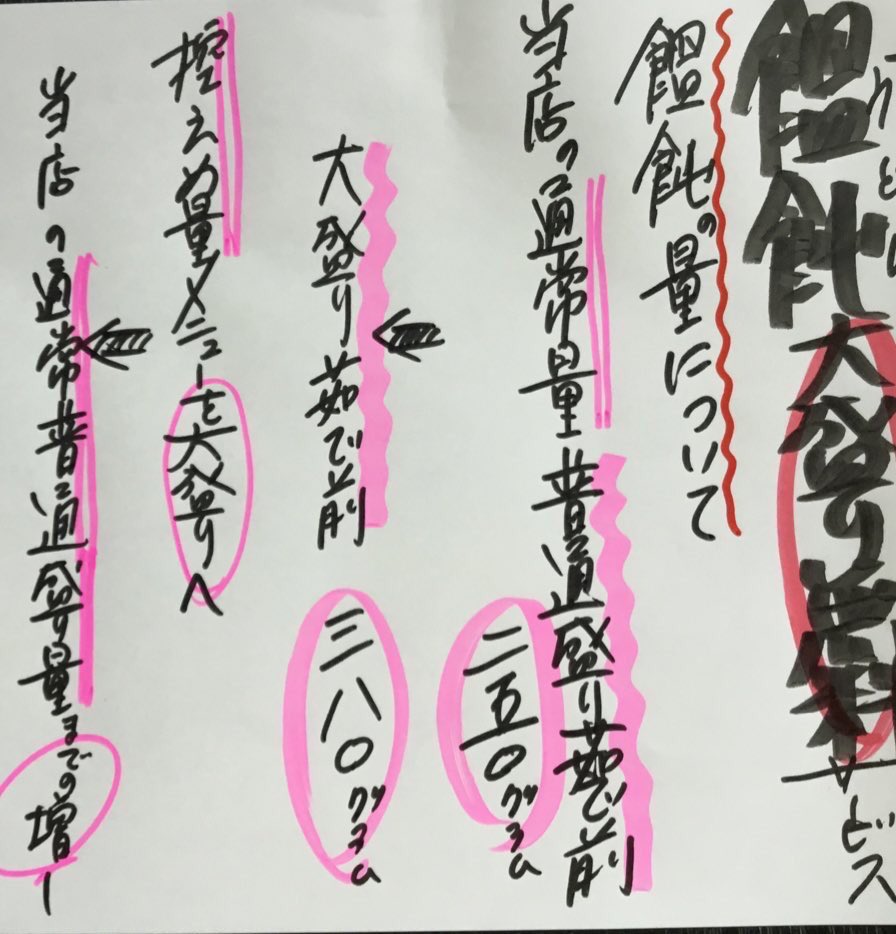 饂飩大盛り無料
ビス
饂飩の量について
当店の通常量 普通盛り茹で前
二五〇グラム
大盛り茹で前 三八〇グラム
控えめ量メニューを大盛りへ
当店の通常普通盛り量までの増